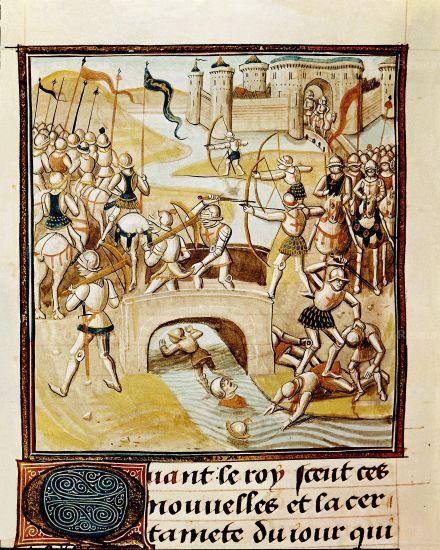 Quant le roy sceut ces
nouuelles et la cer
tainete du iour qui